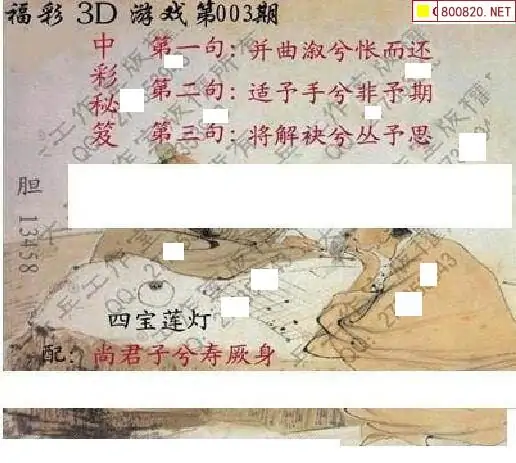 福彩 3D 游戏 第003期
800820.NET
中彩秘笈
第一句：并曲溆兮怅而还
第二句：适予手兮非予期
第三句：将解袂兮丛予思
胆 13458
四宝莲灯
配：尚君子兮寿厥身